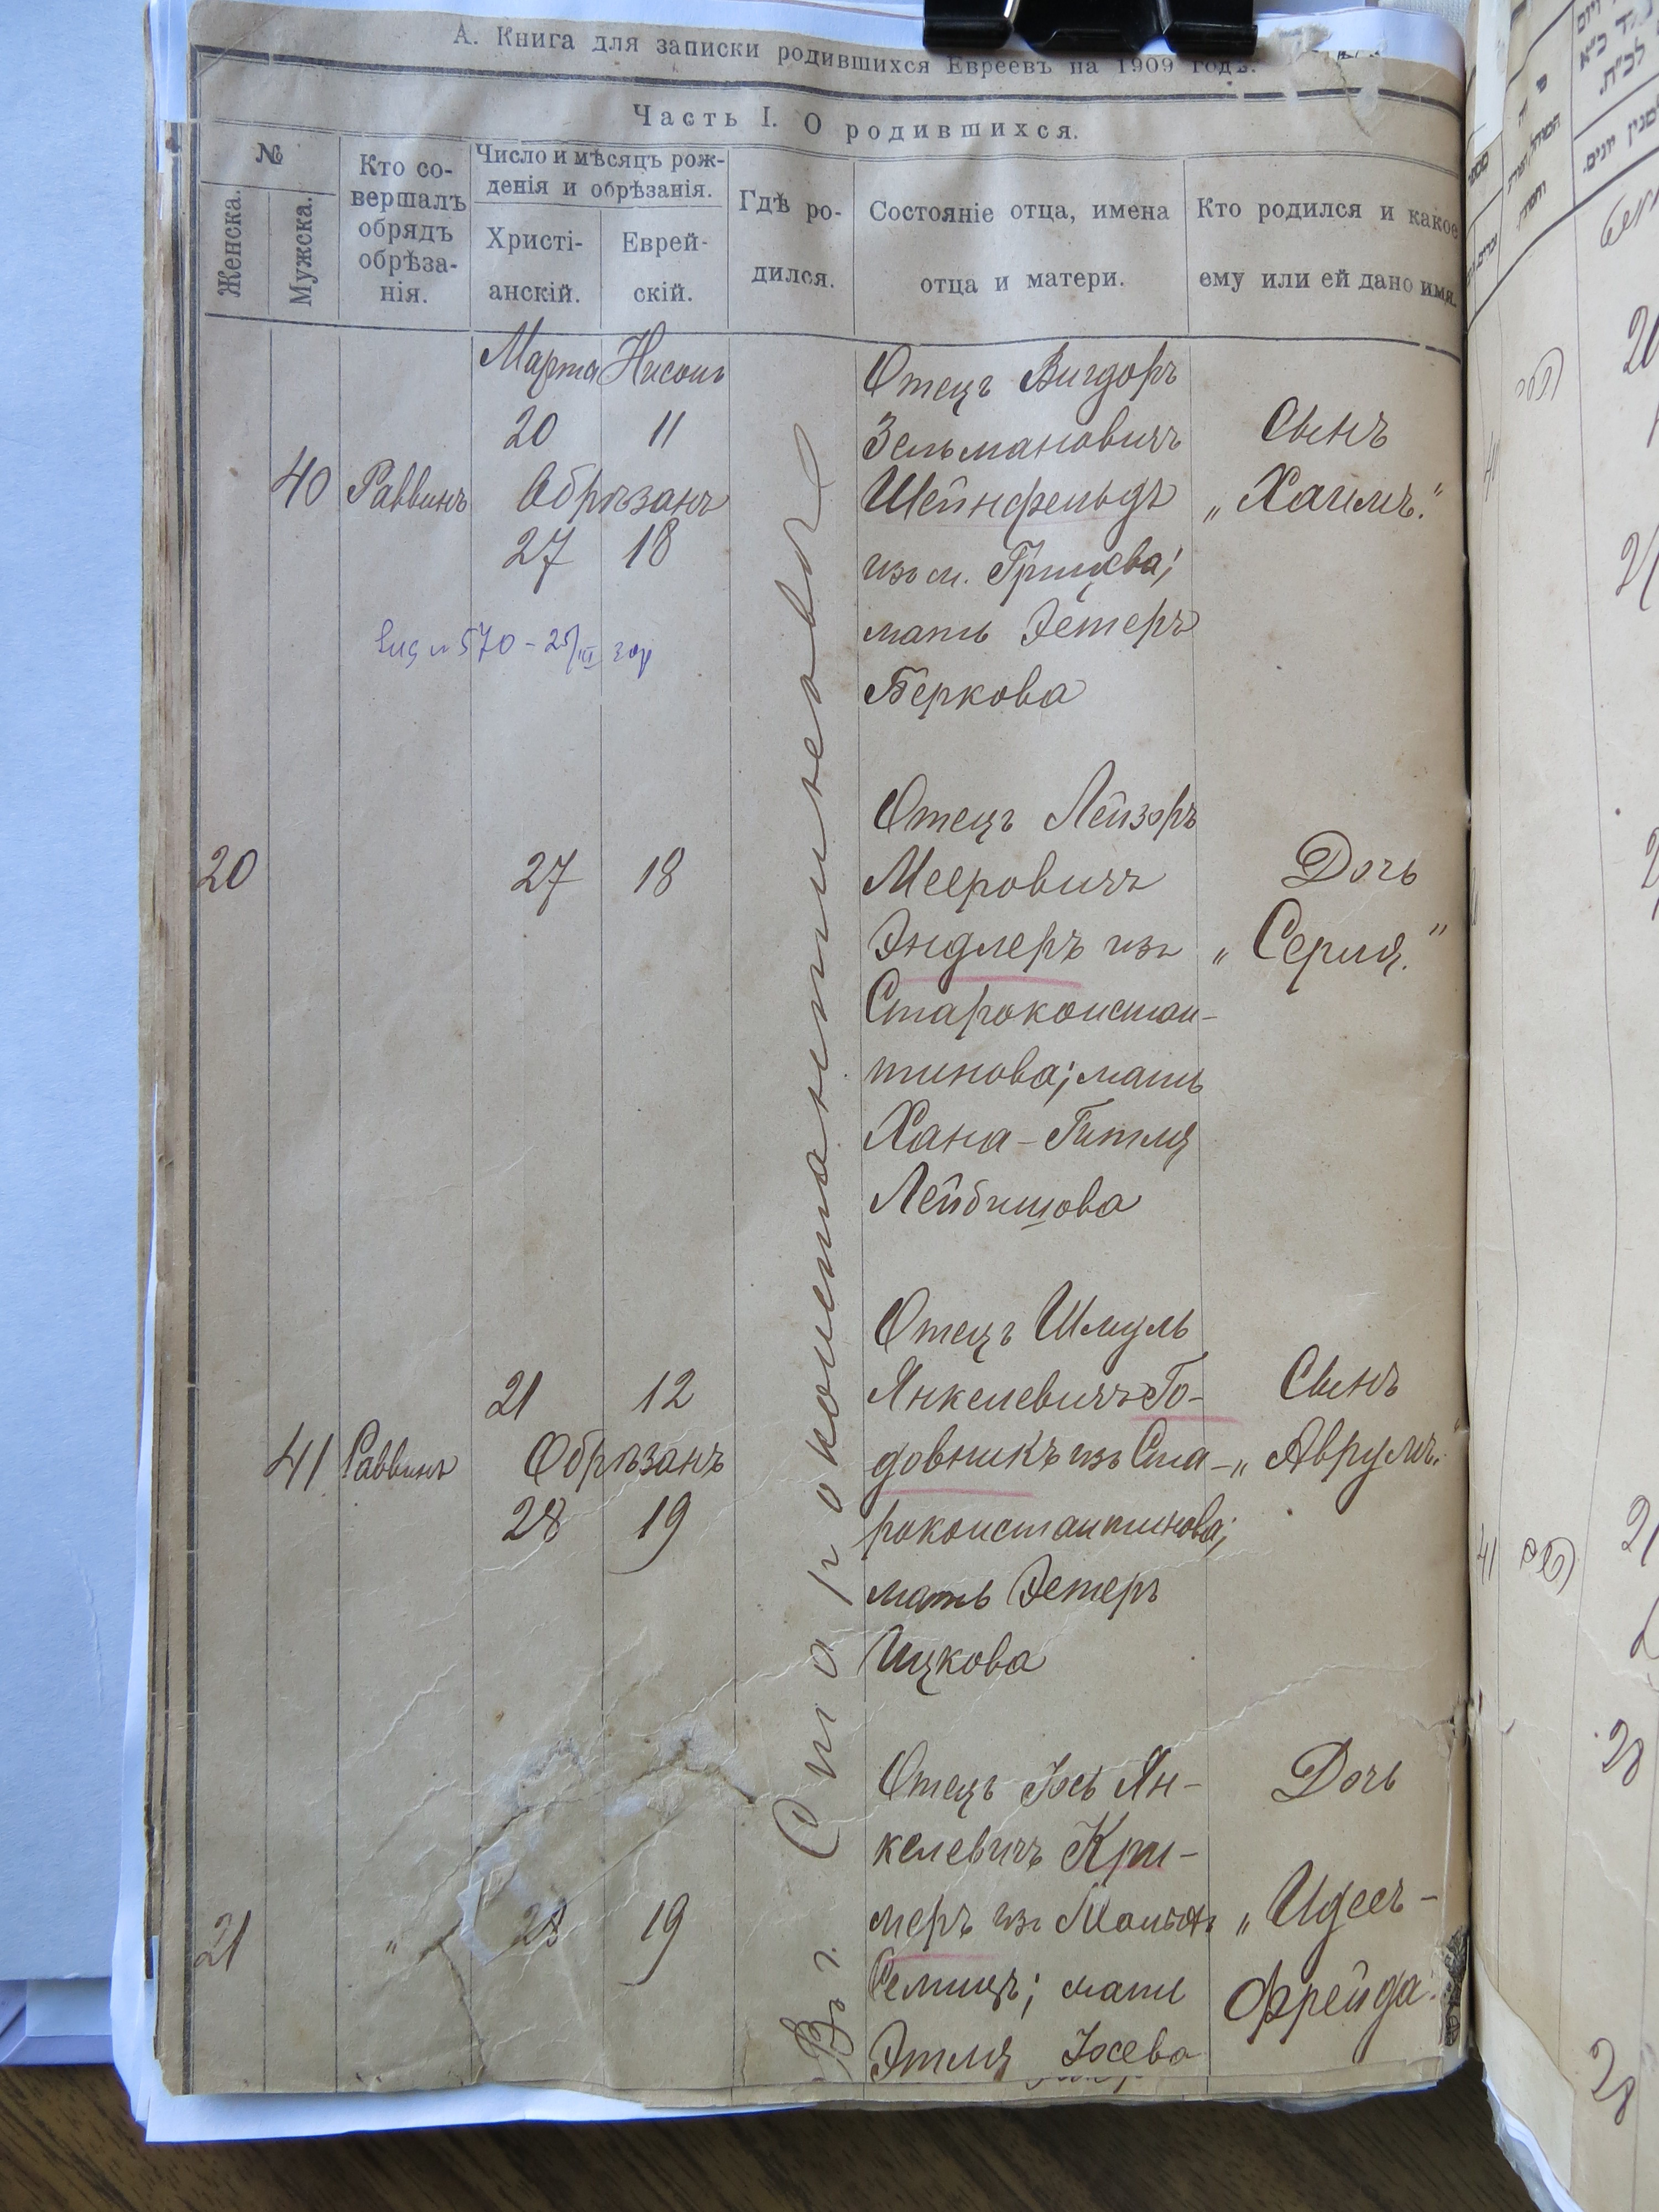 А. Книга для записки родившихся Евреевъ на 1909 годъ.
Часть I. О родившихся.
№
Женска.
Мужска.
Кто со-
вершалъ
обрядъ
обрѣза-
нія.
Число и мѣсяцъ рож-
денія и обрѣзанія.
Христі-
анскій.
Еврей-
скій.
Гдѣ ро-
дился.
Состояніе отца, имена
отца и матери.
Кто родился и какое
ему или ей дано имя.
40
Раввинъ
Марта Нисонъ
20 11
Обрѣзанъ
27 18
Въ г. Староконстантиновѣ
Отецъ Вигдоръ
Зельмановичъ
Шейнфельдъ
изъ м. Грицева;
мать Эстеръ
Беркова
Сынъ
„Хаимъ."
570 - 25/III
20
27 18
Отецъ Лейзоръ
Мееровичъ
Эндлеръ изъ
Староконстан-
тинова; мать
Хана-Гитля
Лейбишова
Дочь
„Серля."
41
Раввинъ
21 12
Обрѣзанъ
28 19
Отецъ Шмуль
Янкелевичъ Го-
довникъ изъ Ста-
роконстантинова;
мать Эстеръ
Ицкова
Сынъ
„Аврумъ."
21
"
28 19
Отецъ Іосъ Ян-
келевичъ Кри-
меръ изъ
мать
Этля Іосева
Дочь
„Идесъ-
Фрейда."
41
21
28
28